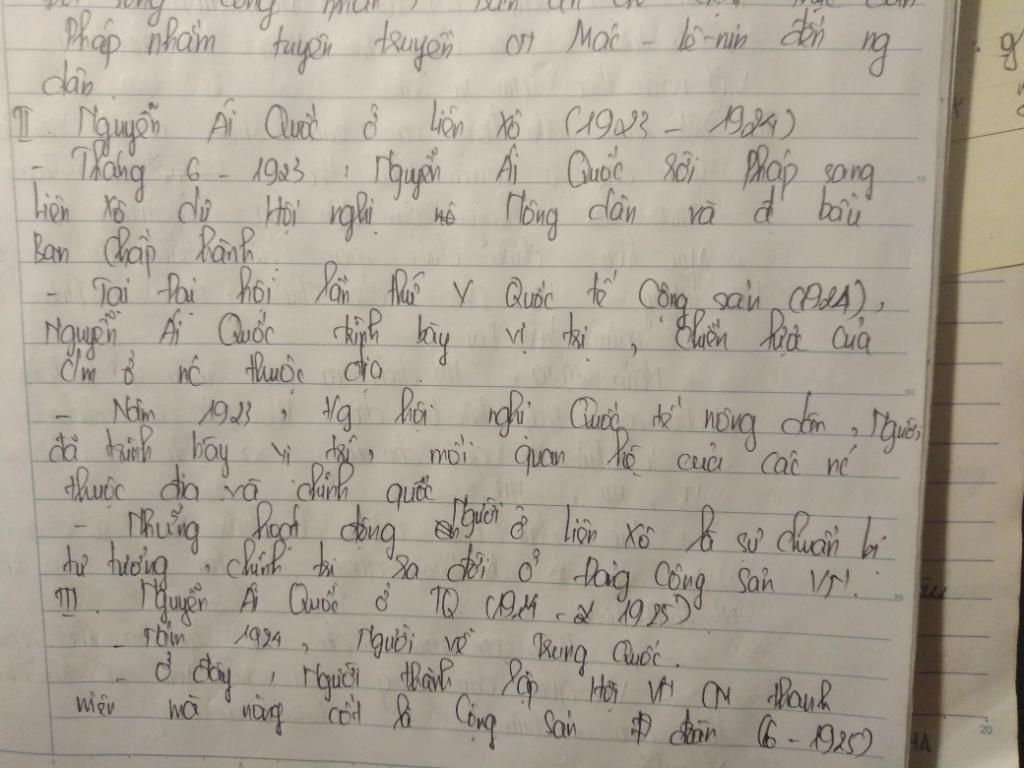 Pháp nhằm tuyên truyền CN Mác - Lê-nin đến ng
dân
II. Nguyễn Ái Quốc ở Liên Xô (1923 - 1924)
- Tháng 6 - 1923, Nguyễn Ái Quốc rời Pháp sang
Liên Xô dự Hội nghị Nông dân và đ bầu
Ban Chấp hành
- Tại Đại hội lần thứ V Quốc tế Cộng sản (1924),
Nguyễn Ái Quốc trình bày vị trí, chiến lược của
c/m ở nc thuộc địa.
- Năm 1923, tg hội nghị Quốc tế nông dân, Người
đã trình bày vị trí, mối quan hệ của các nc
thuộc địa và chính quốc
- Những hoạt động Người ở Liên Xô là sự chuẩn bị
tư tưởng, chính trị ra đời ở Đảng Cộng sản VN.
III. Nguyễn Ái Quốc ở TQ (1924 - 1925)
- Năm 1924, Người về Trung Quốc.
- Ở đây, Người thành lập Hội VN CM thanh
niên mà nòng cốt là Cộng sản đoàn (6 - 1925)